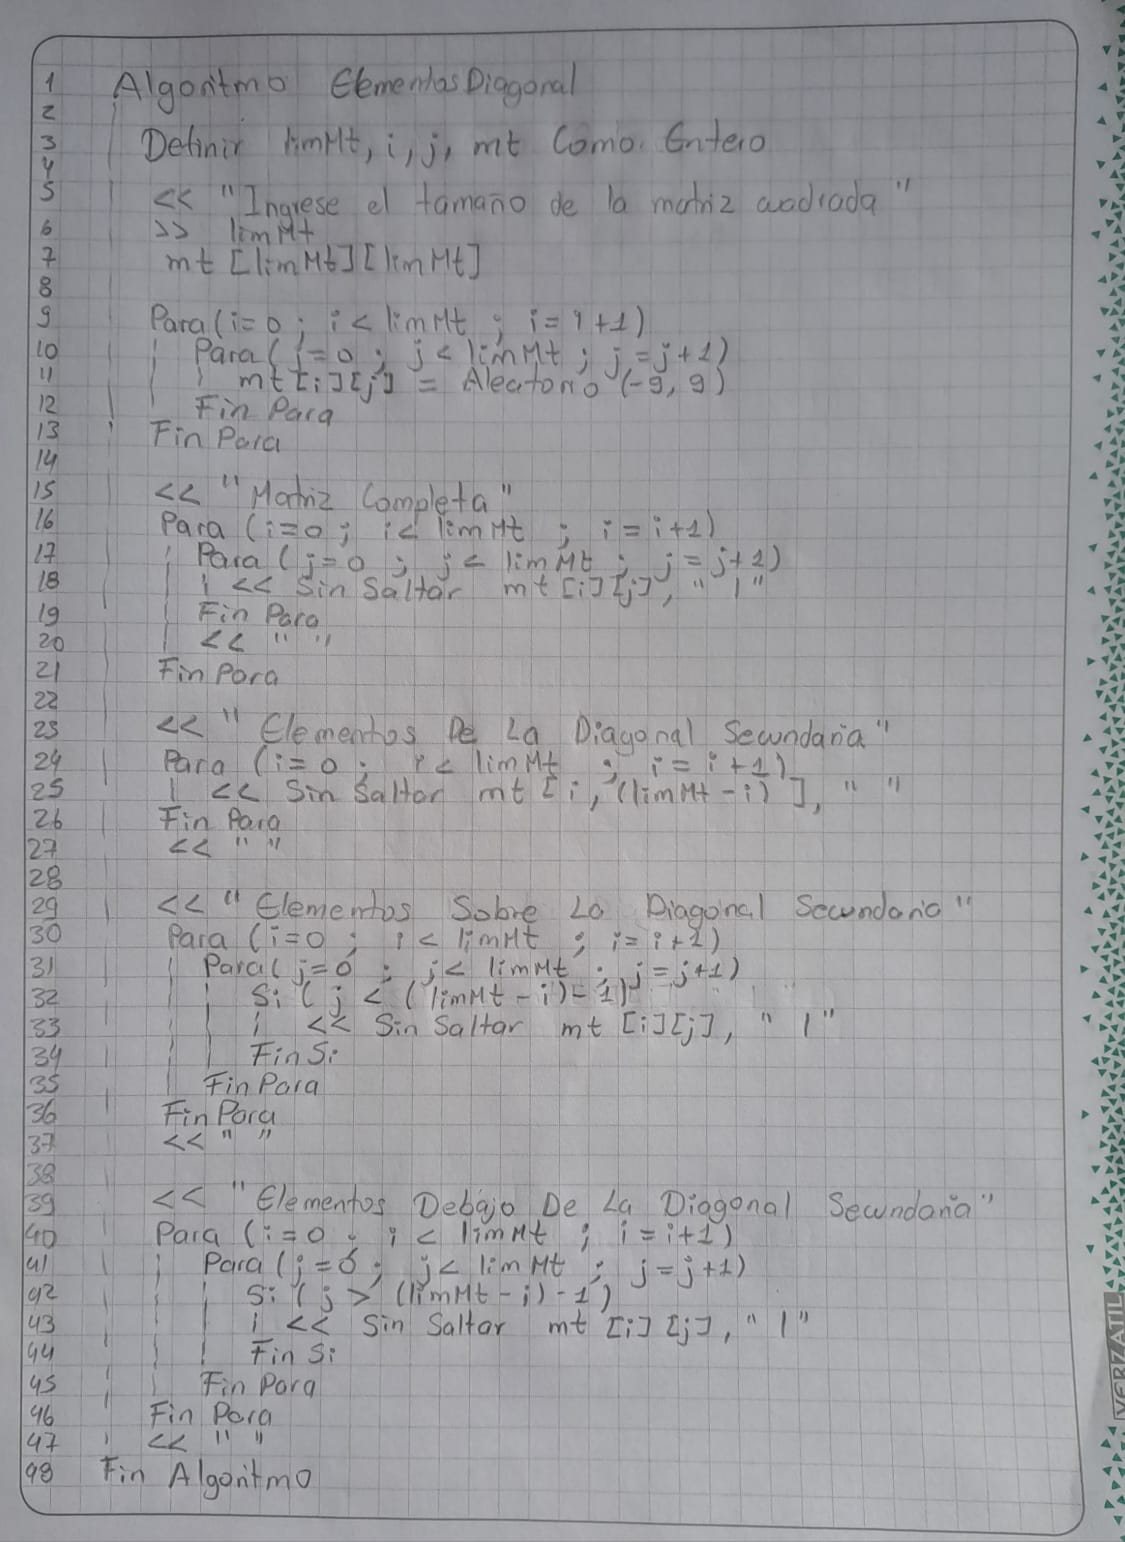 1 Algoritmo ElementosDiagonal
2
3 Definir limMt, i, j, mt Como Entero
4
5 << "Ingrese el tamaño de la matriz cuadrada"
6 >> limMt
7 mt [limMt][limMt]
8
9 Para(i=0; i<limMt; i=i+1)
10 Para(j=0; j<limMt; j=j+1)
11 mt[i][j] = Aleatorio(-9, 9)
12 Fin Para
13 Fin Para
14
15 << "Matriz Completa"
16 Para (i=0; i< limMt; i=i+1)
17 Para (j=0; j< limMt; j=j+1)
18 << Sin Saltar mt[i][j], " |"
19 Fin Para
20 << " "
21 Fin Para
22
23 << "Elementos De La Diagonal Secundaria"
24 Para (i=0; i< limMt; i=i+1)
25 << Sin Saltar mt[i, (limMt-i)], " "
26 Fin Para
27 << " "
28
29 << "Elementos Sobre La Diagonal Secundaria"
30 Para (i=0; i< limMt; i=i+1)
31 Para(j=0; j< limMt; j=j+1)
32 Si(j < (limMt-i)-1)
33 << Sin Saltar mt [i][j], " |"
34 Fin Si
35 Fin Para
36 Fin Para
37 << " "
38
39 << "Elementos Debajo De La Diagonal Secundaria"
40 Para (i=0; i< limMt; i=i+1)
41 Para(j=0; j< limMt; j=j+1)
42 Si(j > (limMt-i)-1)
43 << Sin Saltar mt [i][j], " |"
44 Fin Si
45 Fin Para
46 Fin Para
47 << " "
48 Fin Algoritmo
VERZATIL